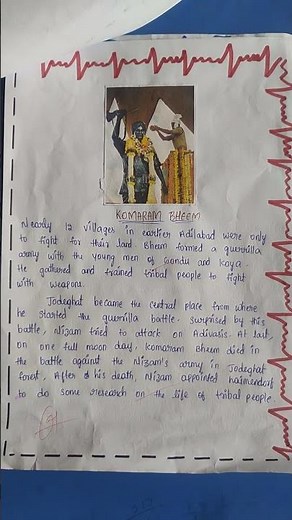 KOMARAM BHEEM
Nearly 12 villages in earlier Adilabad were only
to fight for their land. Bheem formed a guerrilla
army with the young men of Gondu and Koya.
He gathered and trained tribal people to fight
with weapons.
Jodeghat became the central place from where
he started the guerrilla battle. Surprised by this
battle, Nizam tried to attack on Adivasis. At last,
on one full moon day, Komaram Bheem died in
the battle against the Nizam's army in Jodeghat
forest, After of his death, Nizam appointed haimendorf
to do some research on the life of tribal people